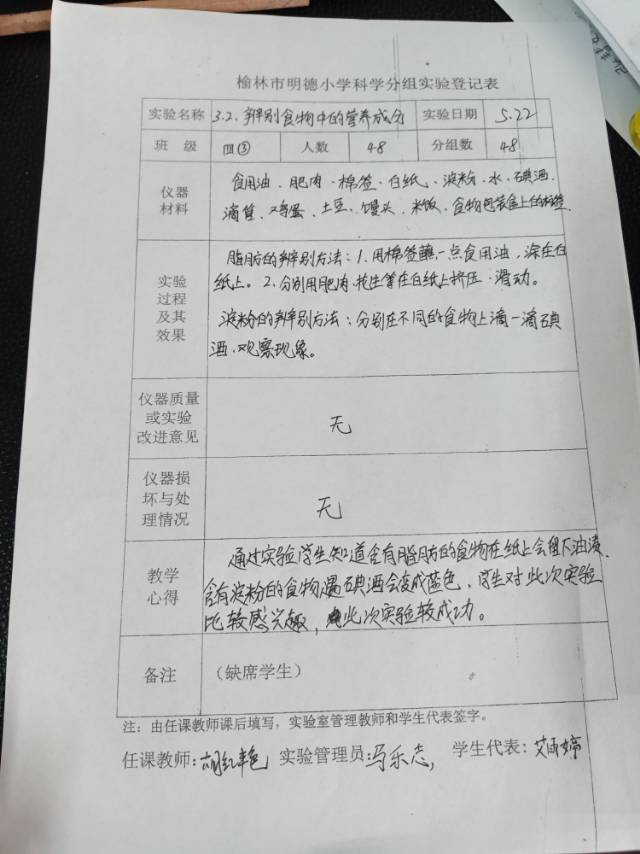 榆林市明德小学科学分组实验登记表
实验名称 3.2.辨别食物中的营养成分 实验日期 5.22
班 级 四③ 人数 48 分组数 48
仪器材料 食用油、肥肉、棉签、白纸、淀粉、水、碘酒、
滴管、鸡蛋、土豆、馒头、米饭、食物包装盒上的标签
实验过程及其效果 脂肪的辨别方法：1.用棉签蘸一点食用油，涂在白
纸上。2.分别用肥肉、花生等在白纸上挤压、滑动。
淀粉的辨别方法：分别在不同的食物上滴一滴碘
酒，观察现象。
仪器质量或实验改进意见 无
仪器损坏与处理情况 无
教学心得 通过实验学生知道含有脂肪的食物在纸上会留下油渍，
含有淀粉的食物遇碘酒会变成蓝色，学生对此次实验
比较感兴趣，此次实验较成功。
备注 （缺席学生）
注：由任课教师课后填写，实验室管理教师和学生代表签字。
任课教师： 实验管理员： 学生代表：